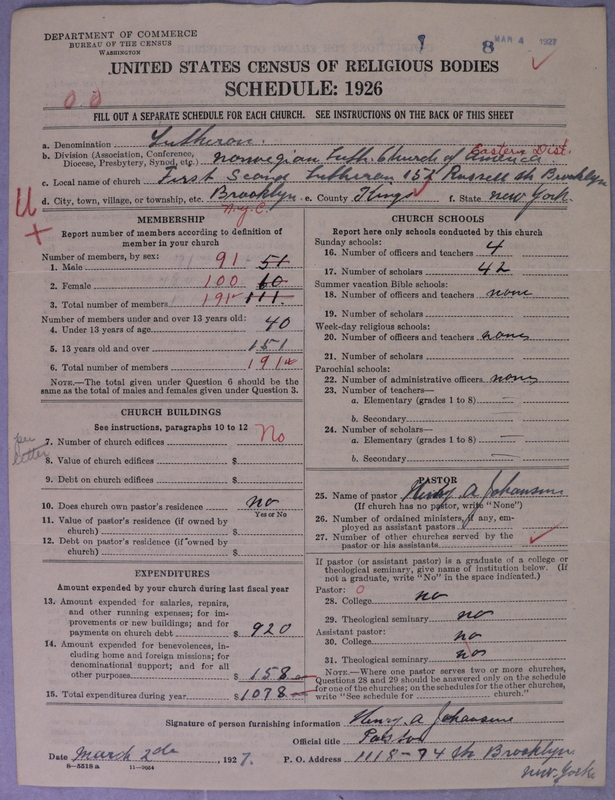 DEPARTMENT OF COMMERCE
BUREAU OF THE CENSUS
WASHINGTON
8 MAR 4 1927
UNITED STATES CENSUS OF RELIGIOUS BODIES
SCHEDULE: 1926
FILL OUT A SEPARATE SCHEDULE FOR EACH CHURCH. SEE INSTRUCTIONS ON THE BACK OF THIS SHEET
a. Denomination Lutheran.
b. Division (Association, Conference, Diocese, Presbytery, Synod, etc.) Norwegian Luth. Church of America. Eastern Dist.
c. Local name of church First Scand Lutheran 152 Russell St Brooklyn
d. City, town, village, or township, etc. Brooklyn e. County Kings f. State New York.
N.Y.C.
MEMBERSHIP
Report number of members according to definition of
member in your church
Number of members, by sex:
1. Male 91 51
2. Female 100 60
3. Total number of members 191 111
Number of members under and over 13 years old:
4. Under 13 years of age 40
5. 13 years old and over 151
6. Total number of members 191
NOTE.—The total given under Question 6 should be the
same as the total of males and females given under Question 3.
CHURCH BUILDINGS
See instructions, paragraphs 10 to 12
per letter
7. Number of church edifices No
8. Value of church edifices $
9. Debt on church edifices $
10. Does church own pastor's residence no
Yes or No
11. Value of pastor's residence (if owned by
church) $
12. Debt on pastor's residence (if owned by
church) $
EXPENDITURES
Amount expended by your church during last fiscal year
13. Amount expended for salaries, repairs,
and other running expenses; for im-
provements or new buildings; and for
payments on church debt $ 920
14. Amount expended for benevolences, in-
cluding home and foreign missions; for
denominational support; and for all
other purposes $ 158
15. Total expenditures during year $ 1078
CHURCH SCHOOLS
Report here only schools conducted by this church
Sunday schools:
16. Number of officers and teachers 4
17. Number of scholars 42
Summer vacation Bible schools:
18. Number of officers and teachers none
19. Number of scholars
Week-day religious schools:
20. Number of officers and teachers none
21. Number of scholars
Parochial schools:
22. Number of administrative officers none
23. Number of teachers—
a. Elementary (grades 1 to 8)
b. Secondary
24. Number of scholars—
a. Elementary (grades 1 to 8)
b. Secondary
PASTOR
25. Name of pastor Henry A Johansen
(If church has no pastor, write "None")
26. Number of ordained ministers, if any, em-
ployed as assistant pastors
27. Number of other churches served by the
pastor or his assistants
If pastor (or assistant pastor) is a graduate of a college or
theological seminary, give name of institution below. (If
not a graduate, write "No" in the space indicated.)
Pastor: 0
28. College no
29. Theological seminary no
Assistant pastor:
30. College no
31. Theological seminary no
NOTE.—Where one pastor serves two or more churches,
Questions 28 and 29 should be answered only on the schedule
for one of the churches; on the schedules for the other churches,
write "See schedule for church."
Signature of person furnishing information Henry A Johansen
Official title Pastor
Date March 2de, 1927. P. O. Address 1118-74 th Brooklyn
New York
8-5518 a 11-9034